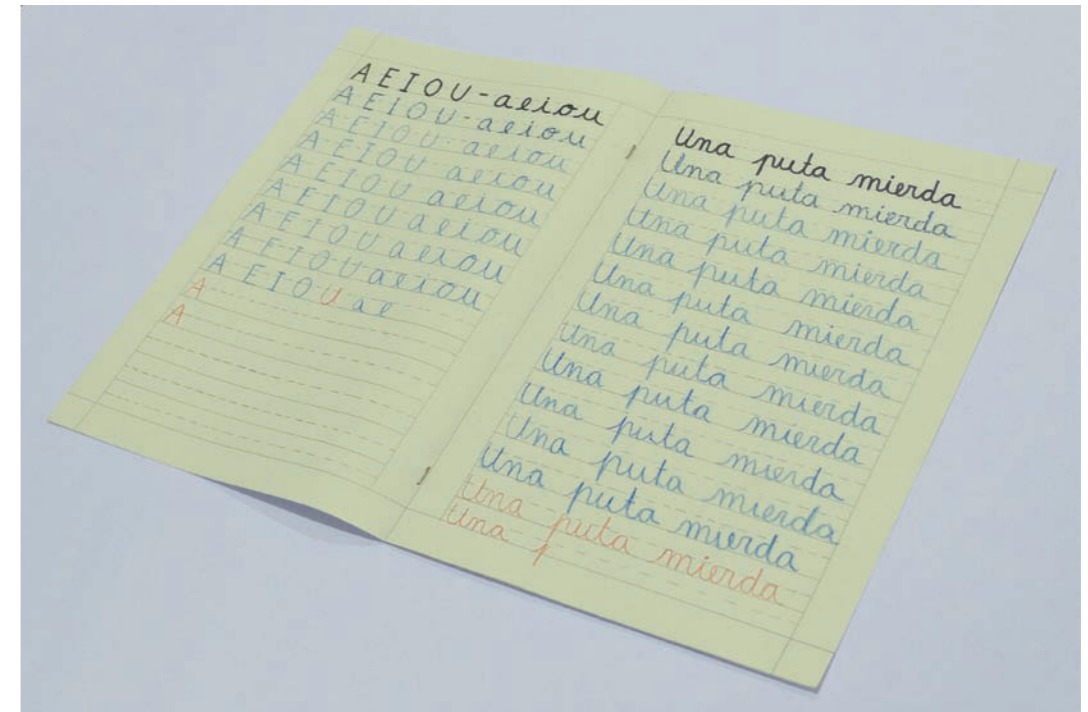 A E I O U - a e i o u
A E I O U - a e i o u
A E I O U - a e i o u
A E I O U a e i o u
A E I O U a e i o u
A E I O U a e i o u
A E I O U a e i o u
A E I O U a e i o u
A E I O U a e
A
A
Una puta mierda
Una puta mierda
Una puta mierda
Una puta mierda
Una puta mierda
Una puta mierda
Una puta mierda
Una puta mierda
Una puta mierda
Una puta mierda
Una puta mierda
Una puta mierda
Una puta mierda
Una p